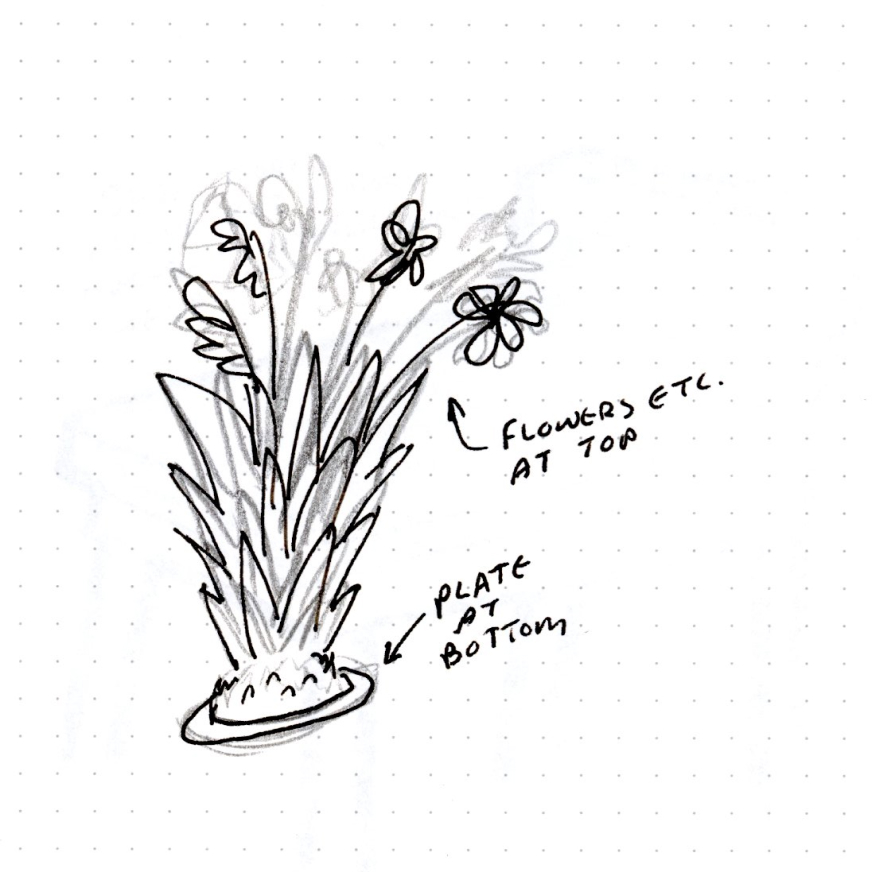 FLOWERS ETC.
AT TOP
PLATE
AT
BOTTOM